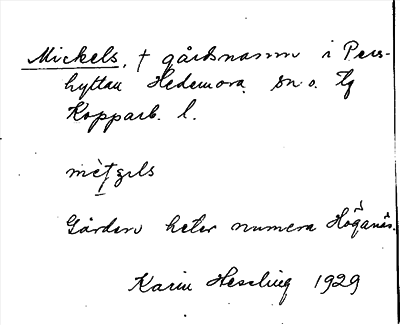 Mickels, † gårdsnamn i Pers-
hyttan Hedemora sn o. tg
Kopparb. l.
Gården heter numera Höganäs.
Karin Hessling 1929